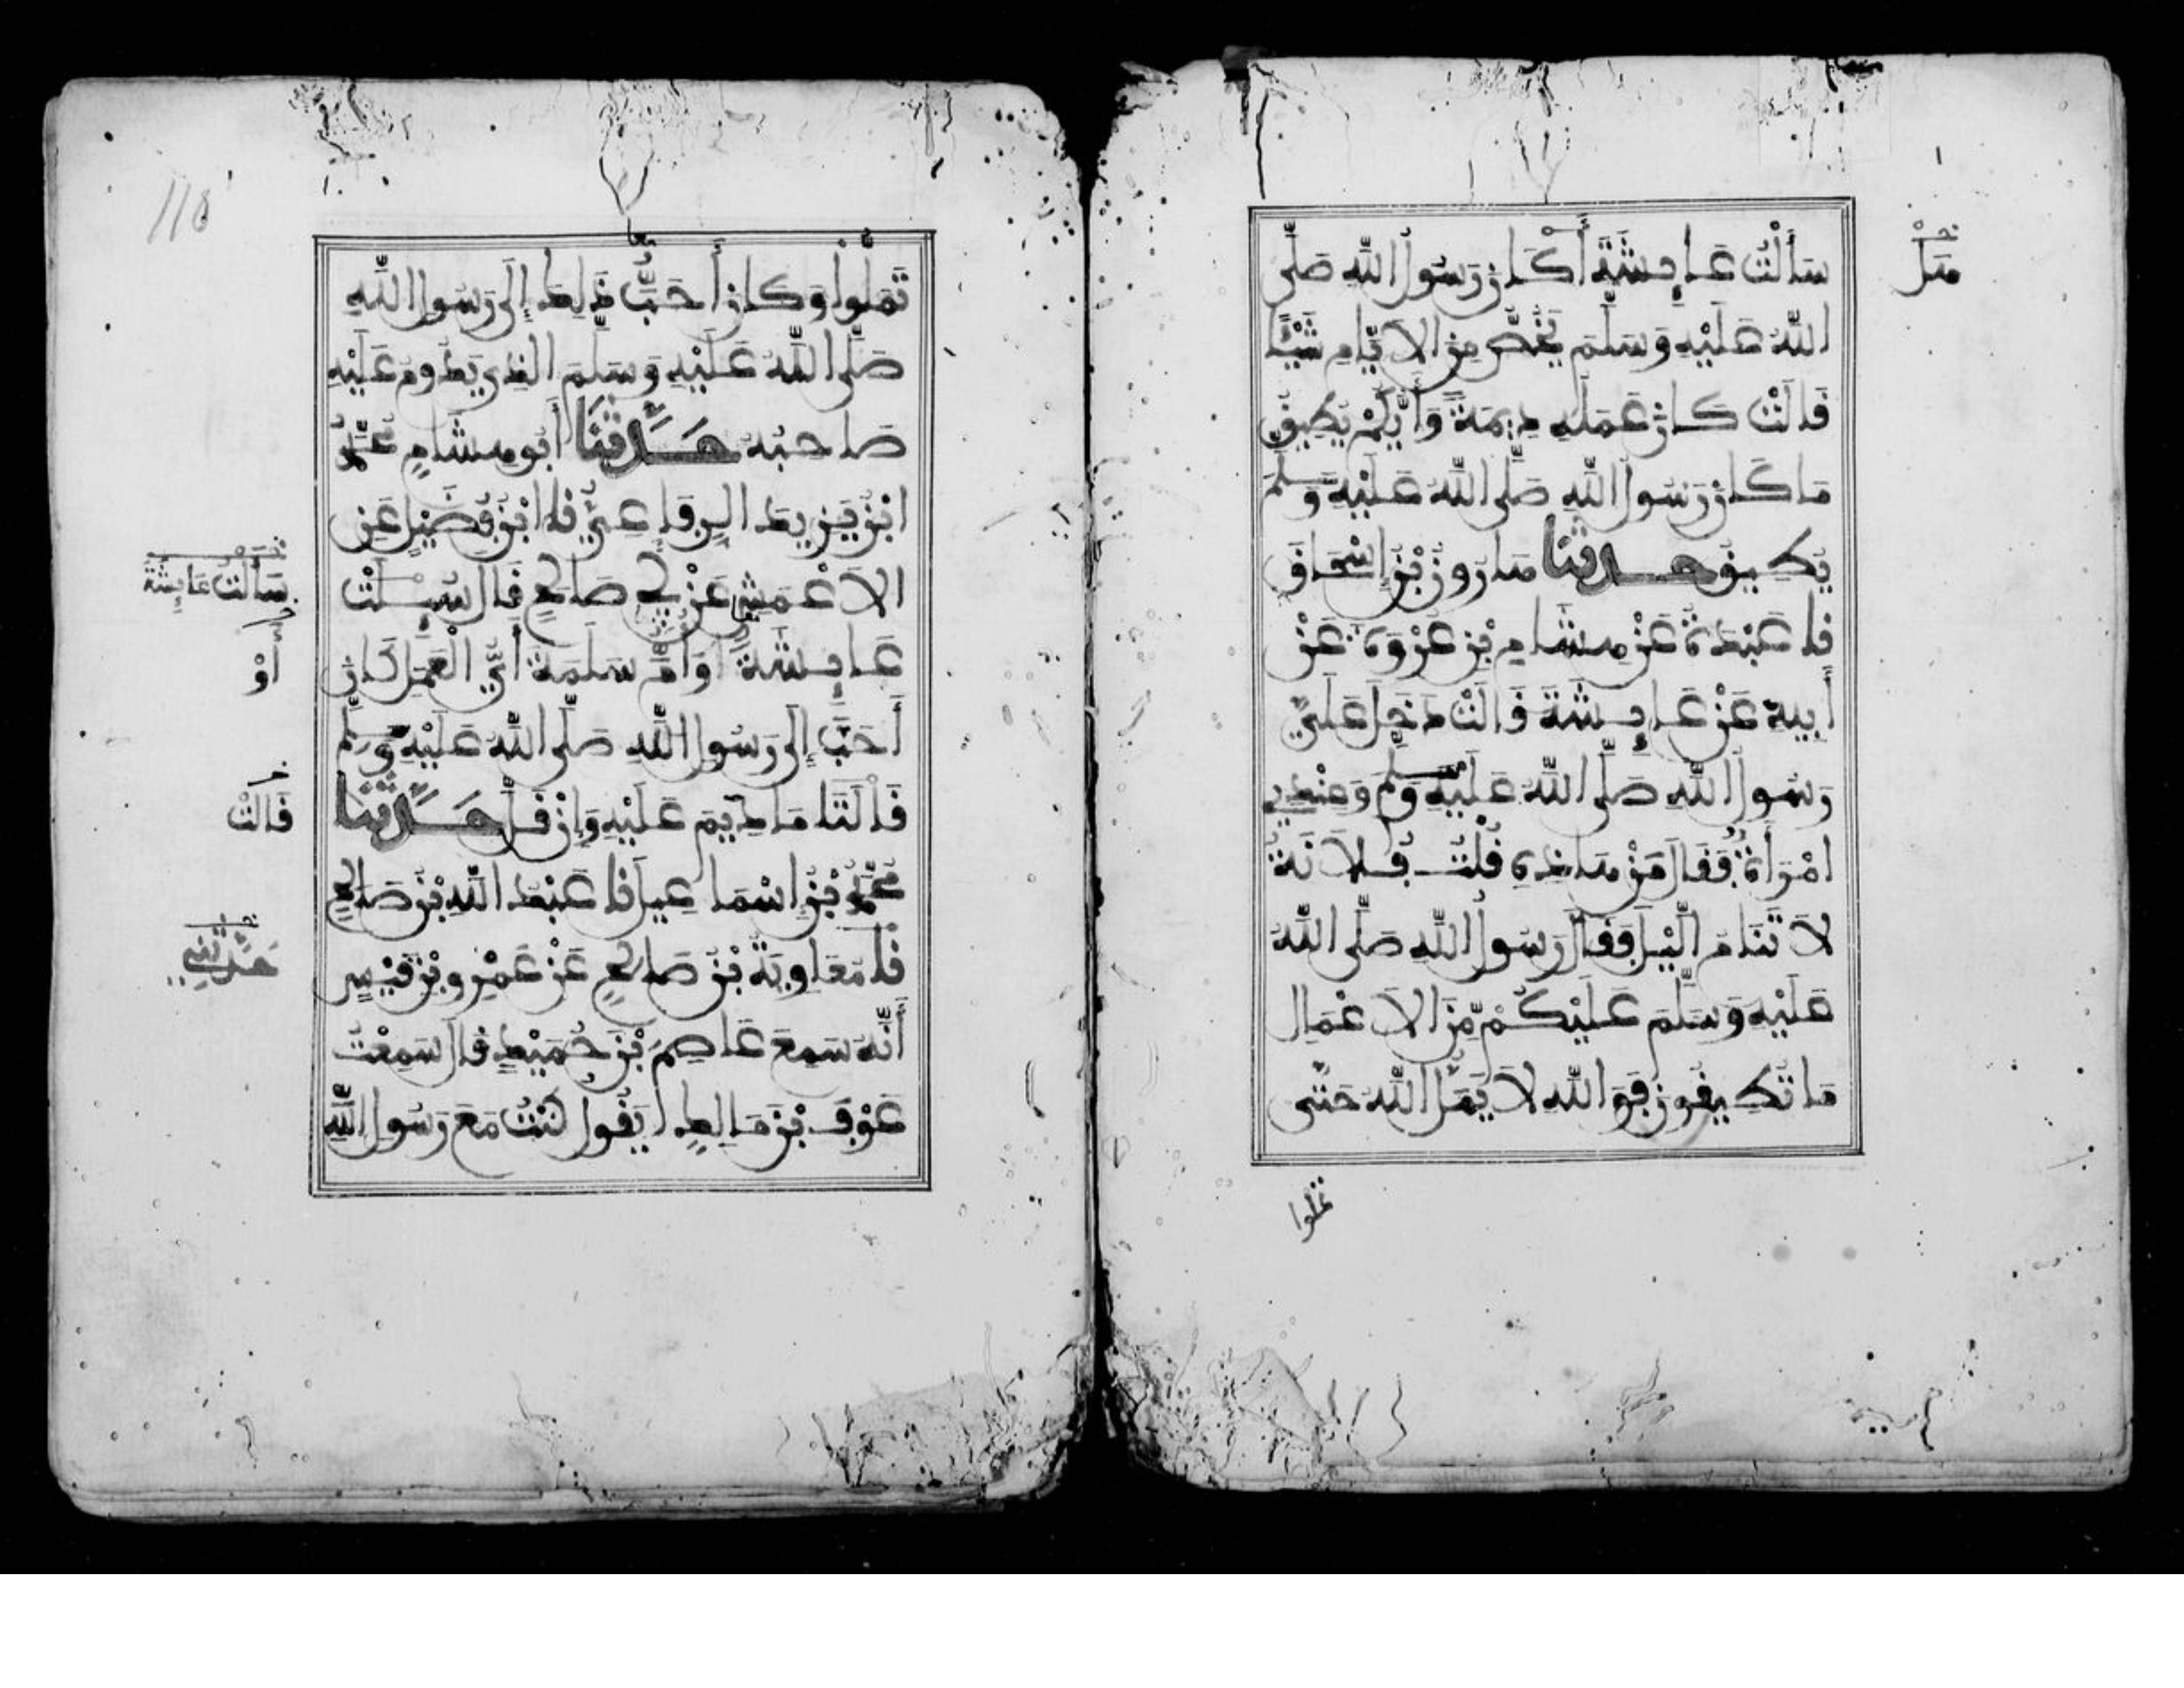 سَأَلْتُ عَائِشَةَ أَكَانَ رَسُولُ اللَّهِ صَلَّى
اللَّهُ عَلَيْهِ وَسَلَّمَ يَخُصُّ مِنَ الْأَيَّامِ شَيْئًا
قَالَتْ كَانَ عَمَلُهُ دِيمَةً وَأَيُّكُمْ يُطِيقُ
مَا كَانَ رَسُولُ اللَّهِ صَلَّى اللَّهُ عَلَيْهِ وَسَلَّمَ
يُطِيقُ حدثنا هَارُونُ بْنُ إِسْحَاقَ
نا عَبْدَةُ عَنْ هِشَامِ بْنِ عُرْوَةَ عَنْ
أَبِيهِ عَنْ عَائِشَةَ قَالَتْ دَخَلَ عَلَيَّ
رَسُولُ اللَّهِ صَلَّى اللَّهُ عَلَيْهِ وَسَلَّمَ وَعِنْدِي
امْرَأَةٌ فَقَالَ مَنْ هَذِهِ قُلْتُ فُلَانَةُ
لَا تَنَامُ الَّيْلَ فَقَالَ رَسُولُ اللَّهِ صَلَّى اللَّهُ
عَلَيْهِ وَسَلَّمَ عَلَيْكُمْ مِنَ الْأَعْمَالِ
مَا تُطِيقُونَ فَوَاللَّهِ لَا يَمَلُّ اللَّهُ حَتَّى
تملوا
هَلْ
110
تَمَلُّوا وَكَانَ أَحَبُّ ذَلِكَ إِلَى رَسُولِ اللَّهِ
صَلَّى اللَّهُ عَلَيْهِ وَسَلَّمَ الَّذِي يَدُومُ عَلَيْهِ
صَاحِبُهُ حَدَّثَنَا أَبُو هِشَامٍ مُحَمَّدُ
ابْنُ يَزِيدَ الرِّفَاعِيُّ نا ابْنُ فُضَيْلٍ عَنِ
الْأَعْمَشِ عَنْ أَبِي صَالِحٍ قَالَ سُئِلَتْ
عَائِشَةُ وَأُمُّ سَلَمَةَ أَيُّ الْعَمَلِ كَانَ
أَحَبَّ إِلَى رَسُولِ اللَّهِ صَلَّى اللَّهُ عَلَيْهِ وَسَلَّمَ
قَالَتَا مَا دِيمَ عَلَيْهِ وَإِنْ قَلَّ حَدَّثَنَا
مُحَمَّدُ بْنُ إِسْمَاعِيلَ نا عَبْدُ اللَّهِ بْنُ صَالِحٍ
نا مُعَاوِيَةُ بْنُ صَالِحٍ عَنْ عَمْرِو بْنِ قَيْسٍ
أَنَّهُ سَمِعَ عَاصِمَ بْنَ حُمَيْدٍ قَالَ سَمِعْتُ
عَوْفَ بْنَ مَالِكٍ يَقُولُ كُنْتُ مَعَ رَسُولِ اللَّهِ
سَأَلْتُ عَائِشَةَ
أَوْ
قَالَتْ
حَدَّثَنِي